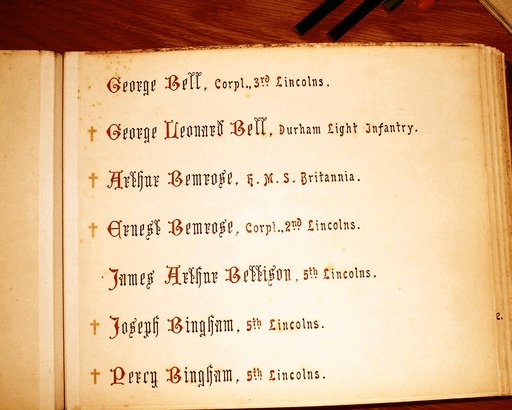 George Bell, Corpl., 3rd Lincolns.
† George Leonard Bell, Durham Light Infantry.
† Arthur Bemrose, H. M. S. Britannia.
† Ernest Bemrose, Corpl., 2nd Lincolns.
James Arthur Bettison, 5th Lincolns.
† Joseph Bingham, 5th Lincolns.
† Percy Bingham, 5th Lincolns.
2.